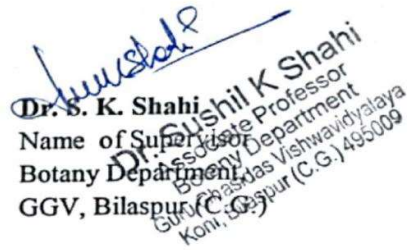 Dr. S. K. Shahi
Name of Supervisor
Botany Department,
GGV, Bilaspur (C.G.)
Dr. Sushil K Shahi
Associate Professor
Botany Department
Guru Ghasidas Vishwavidyalaya
Koni, Bilaspur (C.G.) 495009